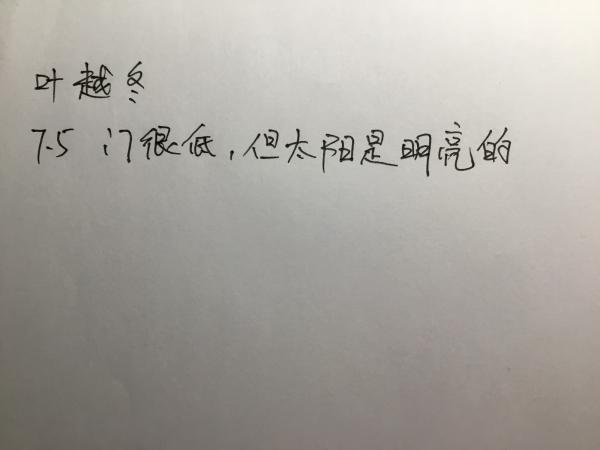 叶越冬
7.5 门很低，但太阳是明亮的